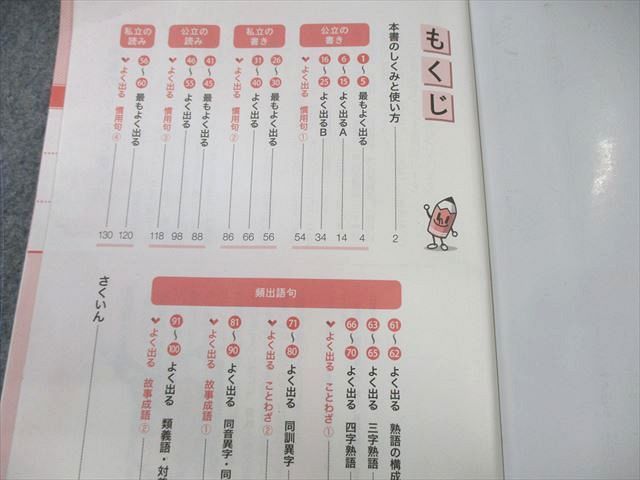 もくじ
本書のしくみと使い方 2
公立の書き
1～5 最もよく出る 4
6～15 よく出るA 14
16～25 よく出るB 34
よく出る 慣用句① 54
私立の書き
26～30 最もよく出る 56
31～40 よく出る 66
よく出る 慣用句② 86
公立の読み
41～45 最もよく出る 88
46～55 よく出る 98
よく出る 慣用句③ 118
私立の読み
56～60 最もよく出る 120
よく出る 慣用句④ 130
頻出語句
61～62 よく出る 熟語の構成
63～65 よく出る 三字熟語
66～70 よく出る 四字熟語
よく出る ことわざ①
71～80 よく出る 同訓異字
よく出る ことわざ②
81～90 よく出る 同音異字・同
よく出る 故事成語①
91～100 よく出る 類義語・対
よく出る 故事成語②
さくいん